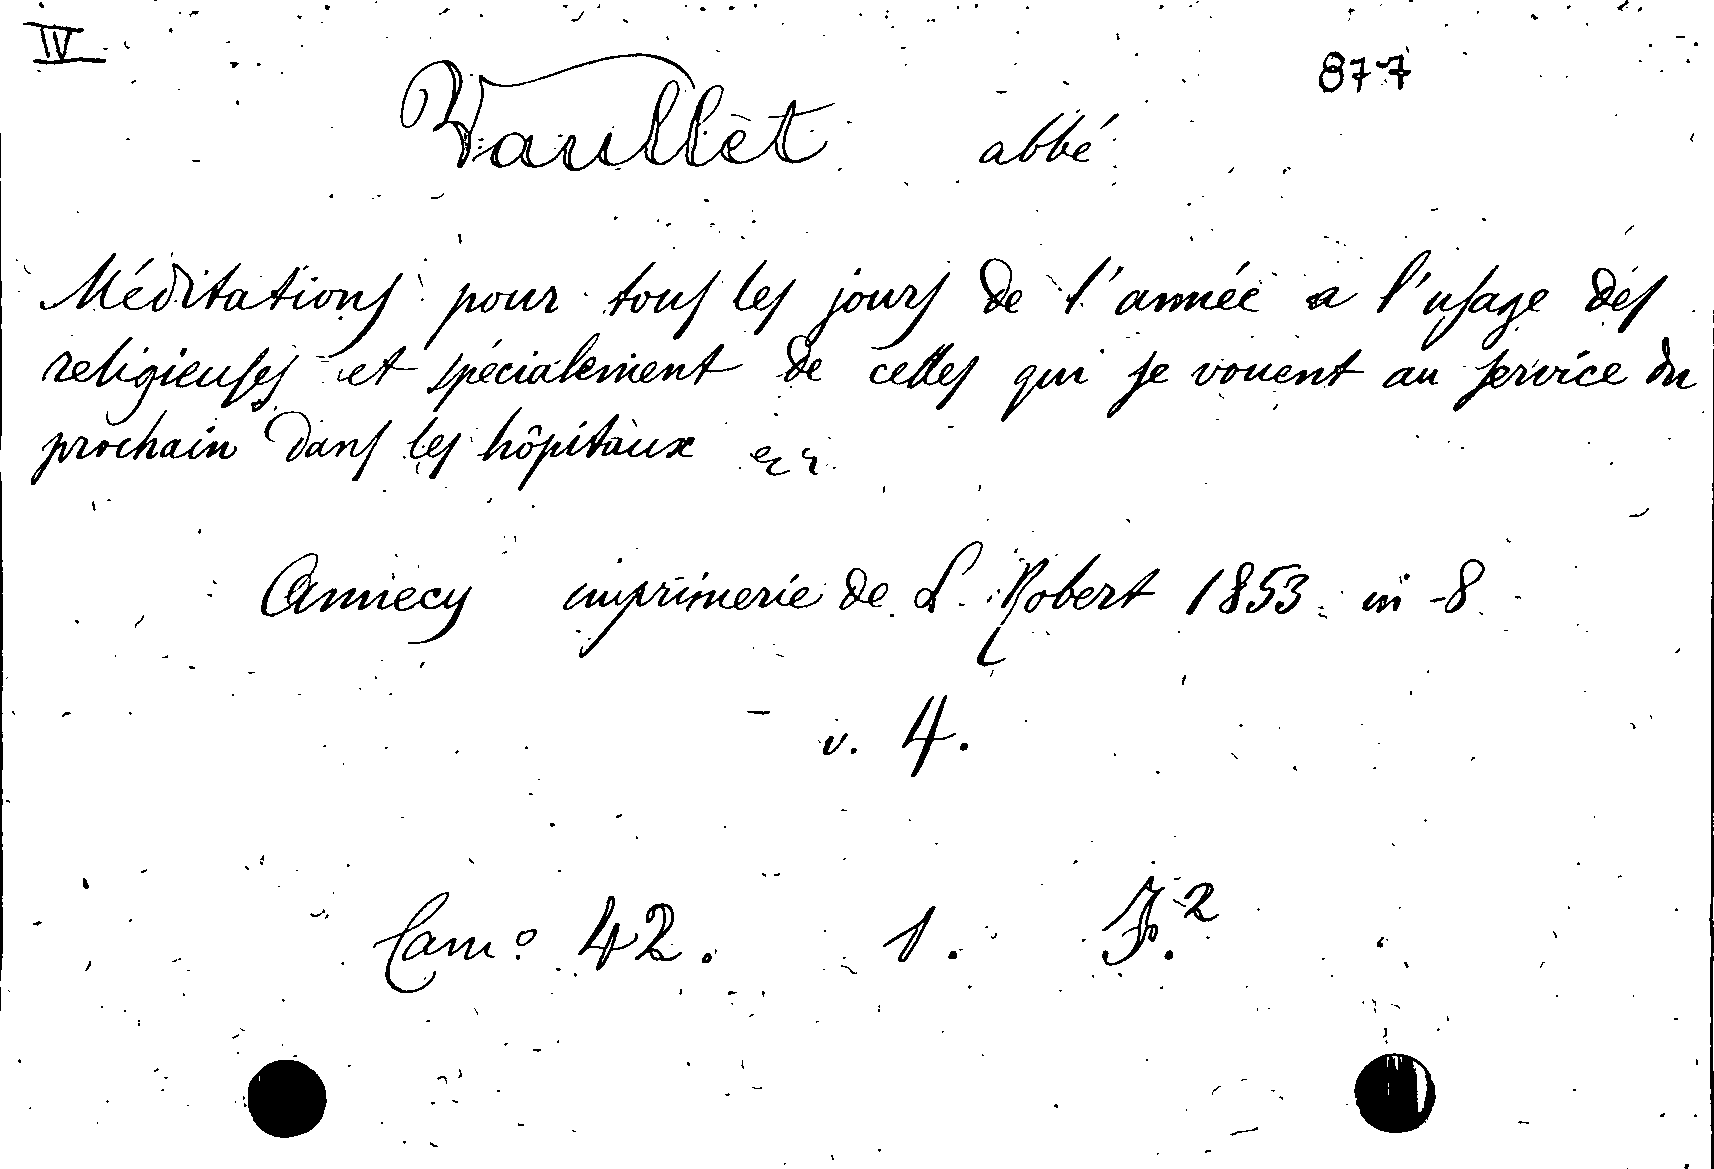 IV
877
Vaullèt abbé
Méditations pour tous les jours de l'année a l'usage des
religieuses et spécialement de celles qui se vouent au service du
prochain dans les hôpitaux
Annecy imprimerie de L. Robert 1853 in-8
v. 4.
Camº 42. 1. F.2